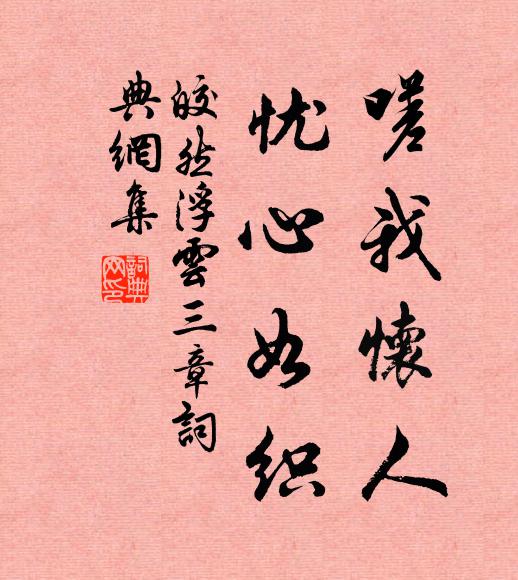 嗟我懷人
忧心如织
皎然浮雲三章詞
典網集
詞典网印